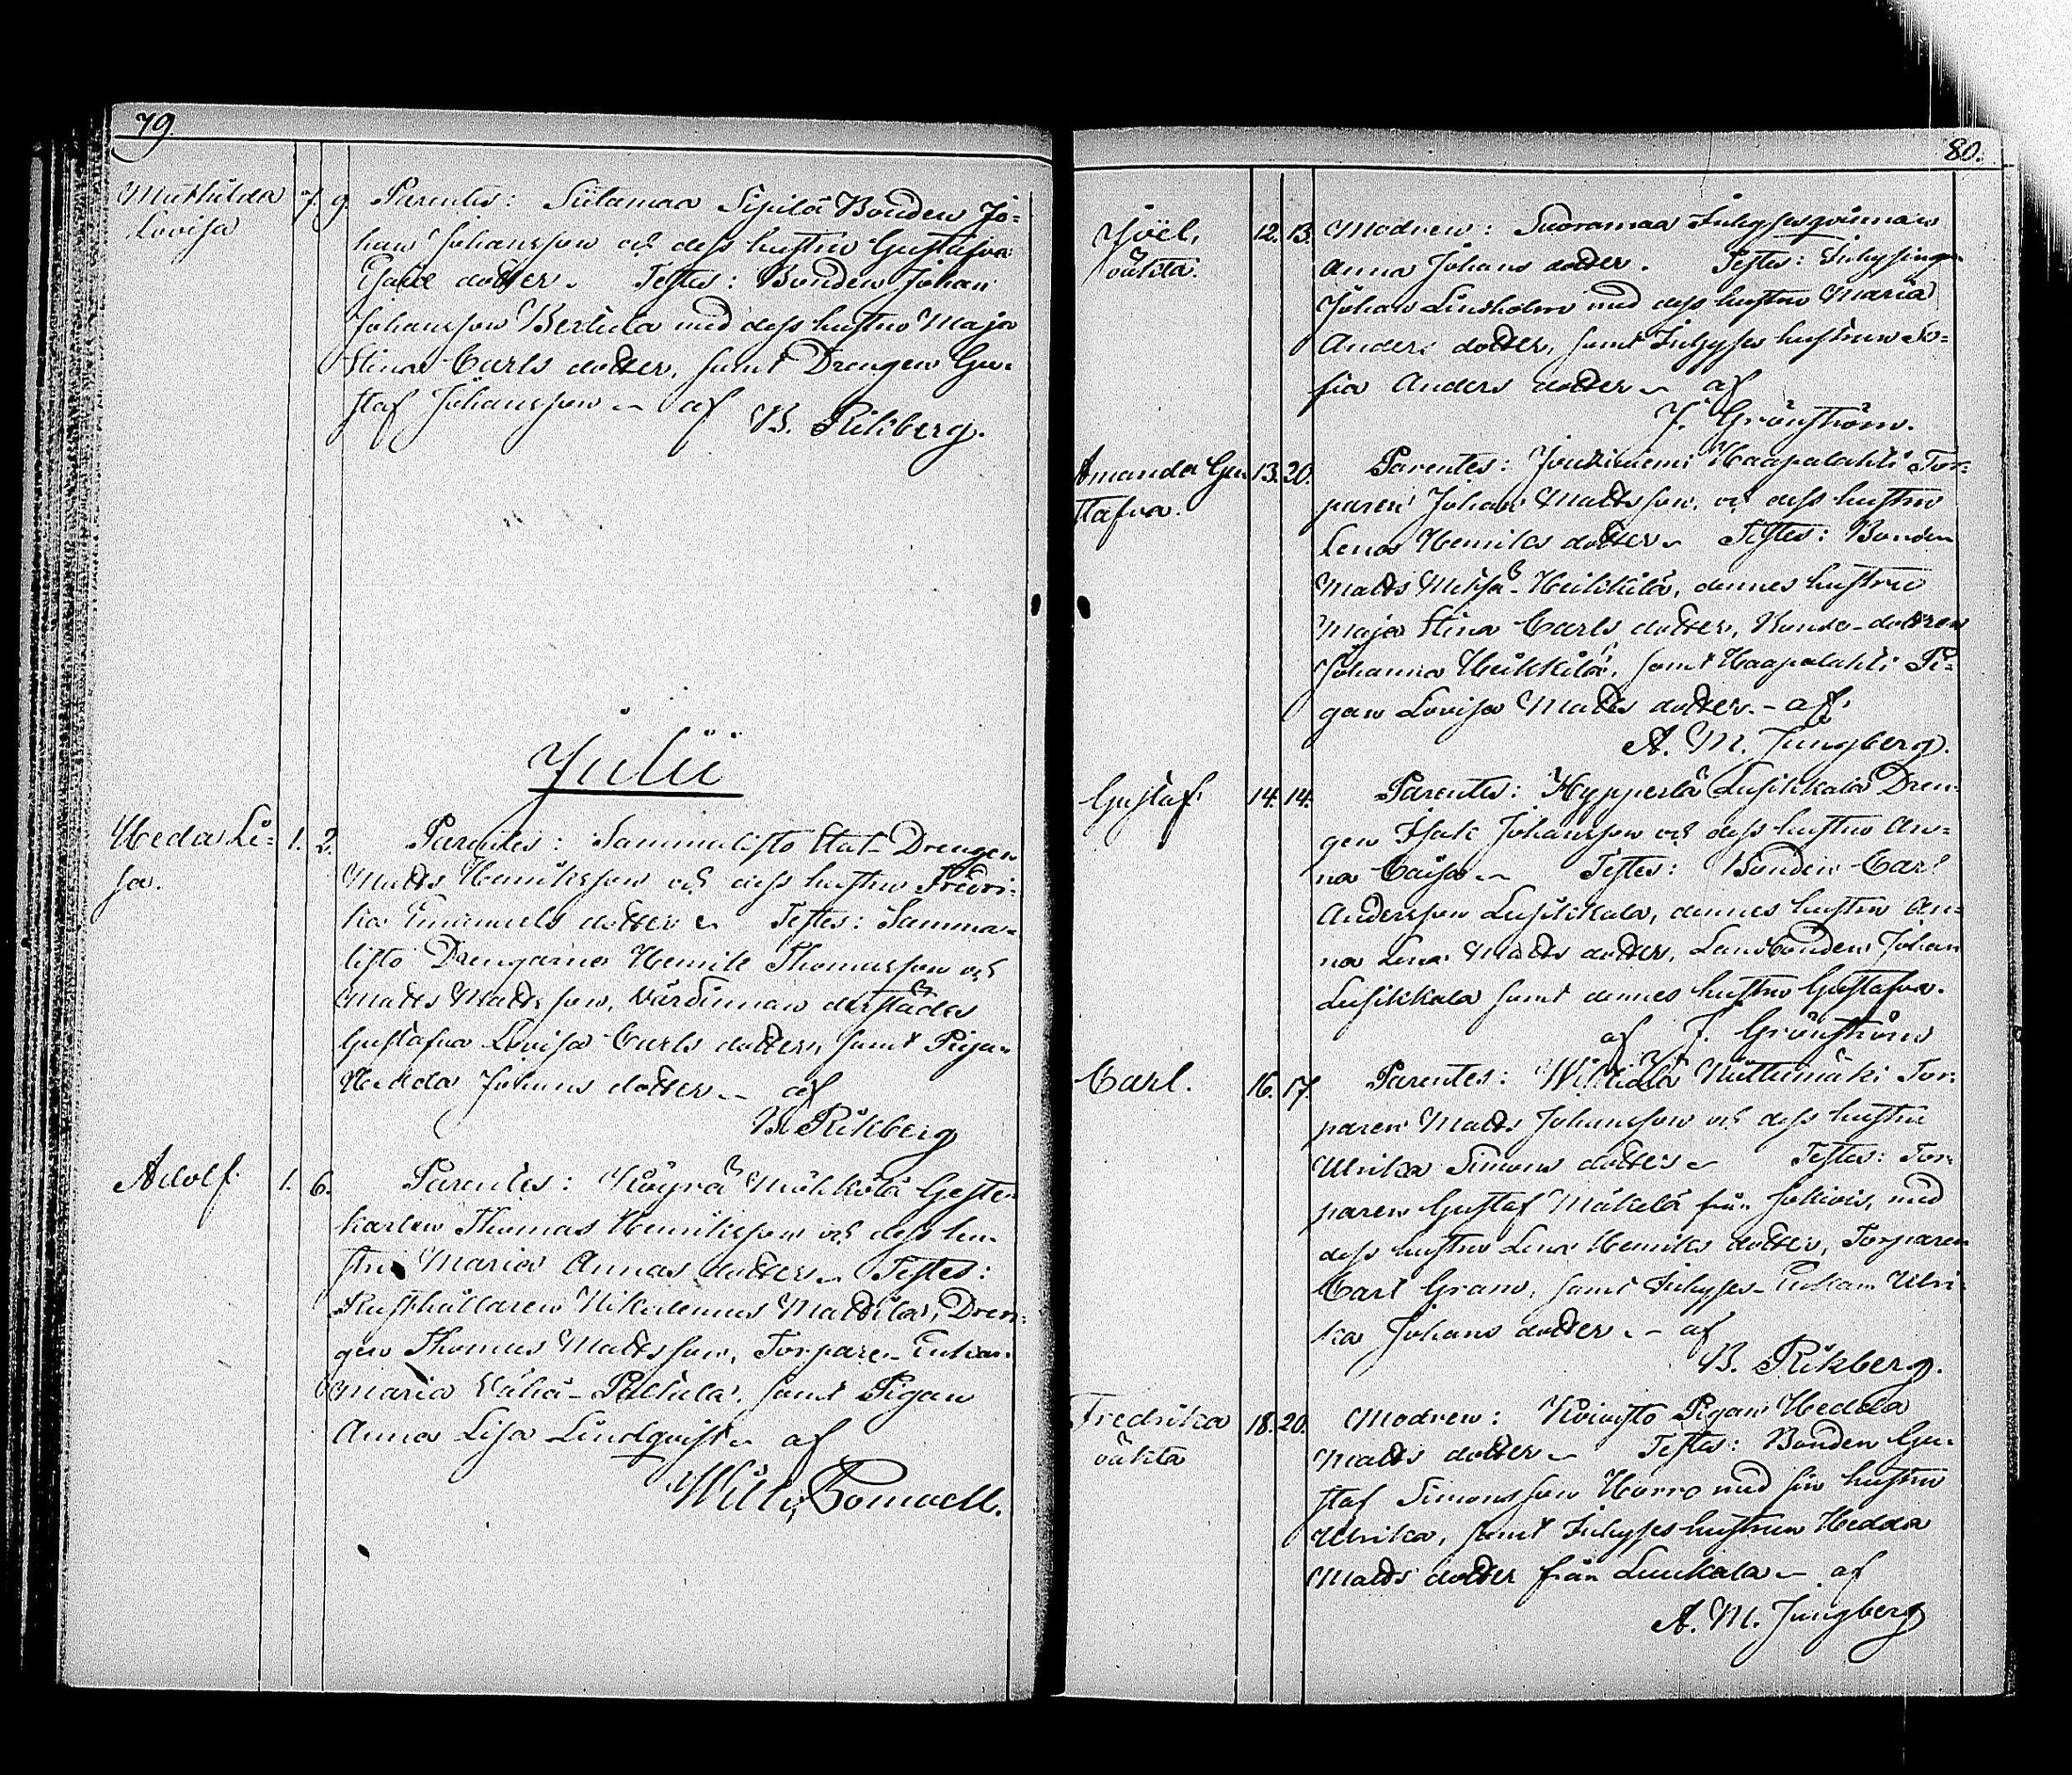 79.
Mathilda 7. 9. Parentes: Sillanmaa Sipilä Bonden Jo-
Lovisa
han Johansson och dess hustru Gustafva
Esaie dotter. Testes: Bonden Johan
Johansson Bertula med dess hustru Maja
Stina Carls dotter, samt Drengen Gu-
staf Johansson. af
B. Rikberg.
Julii
Heda Li- 1. 2. Parentes: Sammalisto Stat-Drengen
sa.
Matts Henriksson och dess hustru Fredri-
ka Emanuels dotter. Testes: Samma-
listo Drengarna Henrik Thomasson och
Matts Mattsson, Värdinnan derstädes
Gustafva Lovisa Carls dotter, samt Pigan
Hedda Johans dotter. af
B. Rikberg
Adolf. 1. 6. Parentes: Köyrä Mälkölä Gester-
karlen Thomas Henriksson och dess hu-
stru Maria Annas dotter. Testes:
Rusthållaren Nikodemus Mattila, Dren-
gen Thomas Mattsson, Torpare-Enkan
Maria Vähä-Pollula, samt Pigan
Anna Lisa Lindqvist. af
Wilh. Bomaell.
80.
Joël, 12. 13. Modren: Suoramaa Inhysesqvinnan
oäkta.
Anna Johans dotter. Testes: Inhysing
Johan Lindholm med dess hustru Maria
Anders dotter, samt Inhyses hustrun So-
fia Anders dotter. af
J. Grönström.
Amanda Gu- 13. 20. Parentes: Joutsiniemi Haapalahti Tor-
stafva.
paren Johan Mattsson, och dess hustru
Lena Henriks dotter. Testes: Bonden
Matts Mehsä-Heikkilä, dennes hustru
Maja Stina Carls dotter, Bonde-dottren
Johanna Heikkilä, samt Haapalahti Pi-
gan Lovisa Matts dotter. - af
A. M. Jungberg.
Gustaf. 14. 14. Parentes: Hypperlä Lusikkala Dren-
gen Isak Johansson och dess hustru An-
na Caisa. Testes: Bonden Carl
Andersson Lusikkala, dennes hustru An-
na Lena Matts dotter, Landbonden Johan
Lusikkala samt dennes hustru Gustafva.
af J. Grönström
Carl. 16. 17. Parentes: Wiksilä Niittumäki Tor-
paren Matts Johansson och dess hustru
Ulrika Simons dotter. Testes: Tor-
paren Gustaf Mäkelä från Jokiois, med
dess hustru Lena Henriks dotter, Torparen
Carl Gran, samt Inhyses-Enkan Ulri-
ka Johans dotter. - af
B. Rikberg.
Fredrika 18. 20. Modren: Koivisto Pigan Hedda
oäkta
Matts dotter. Testes: Bonden Gu-
staf Simonsson Horro med sin hustru
Ulrika, samt Inhyses hustrun Hedda
Matts dotter från Luukala. af
A. M. Jungberg